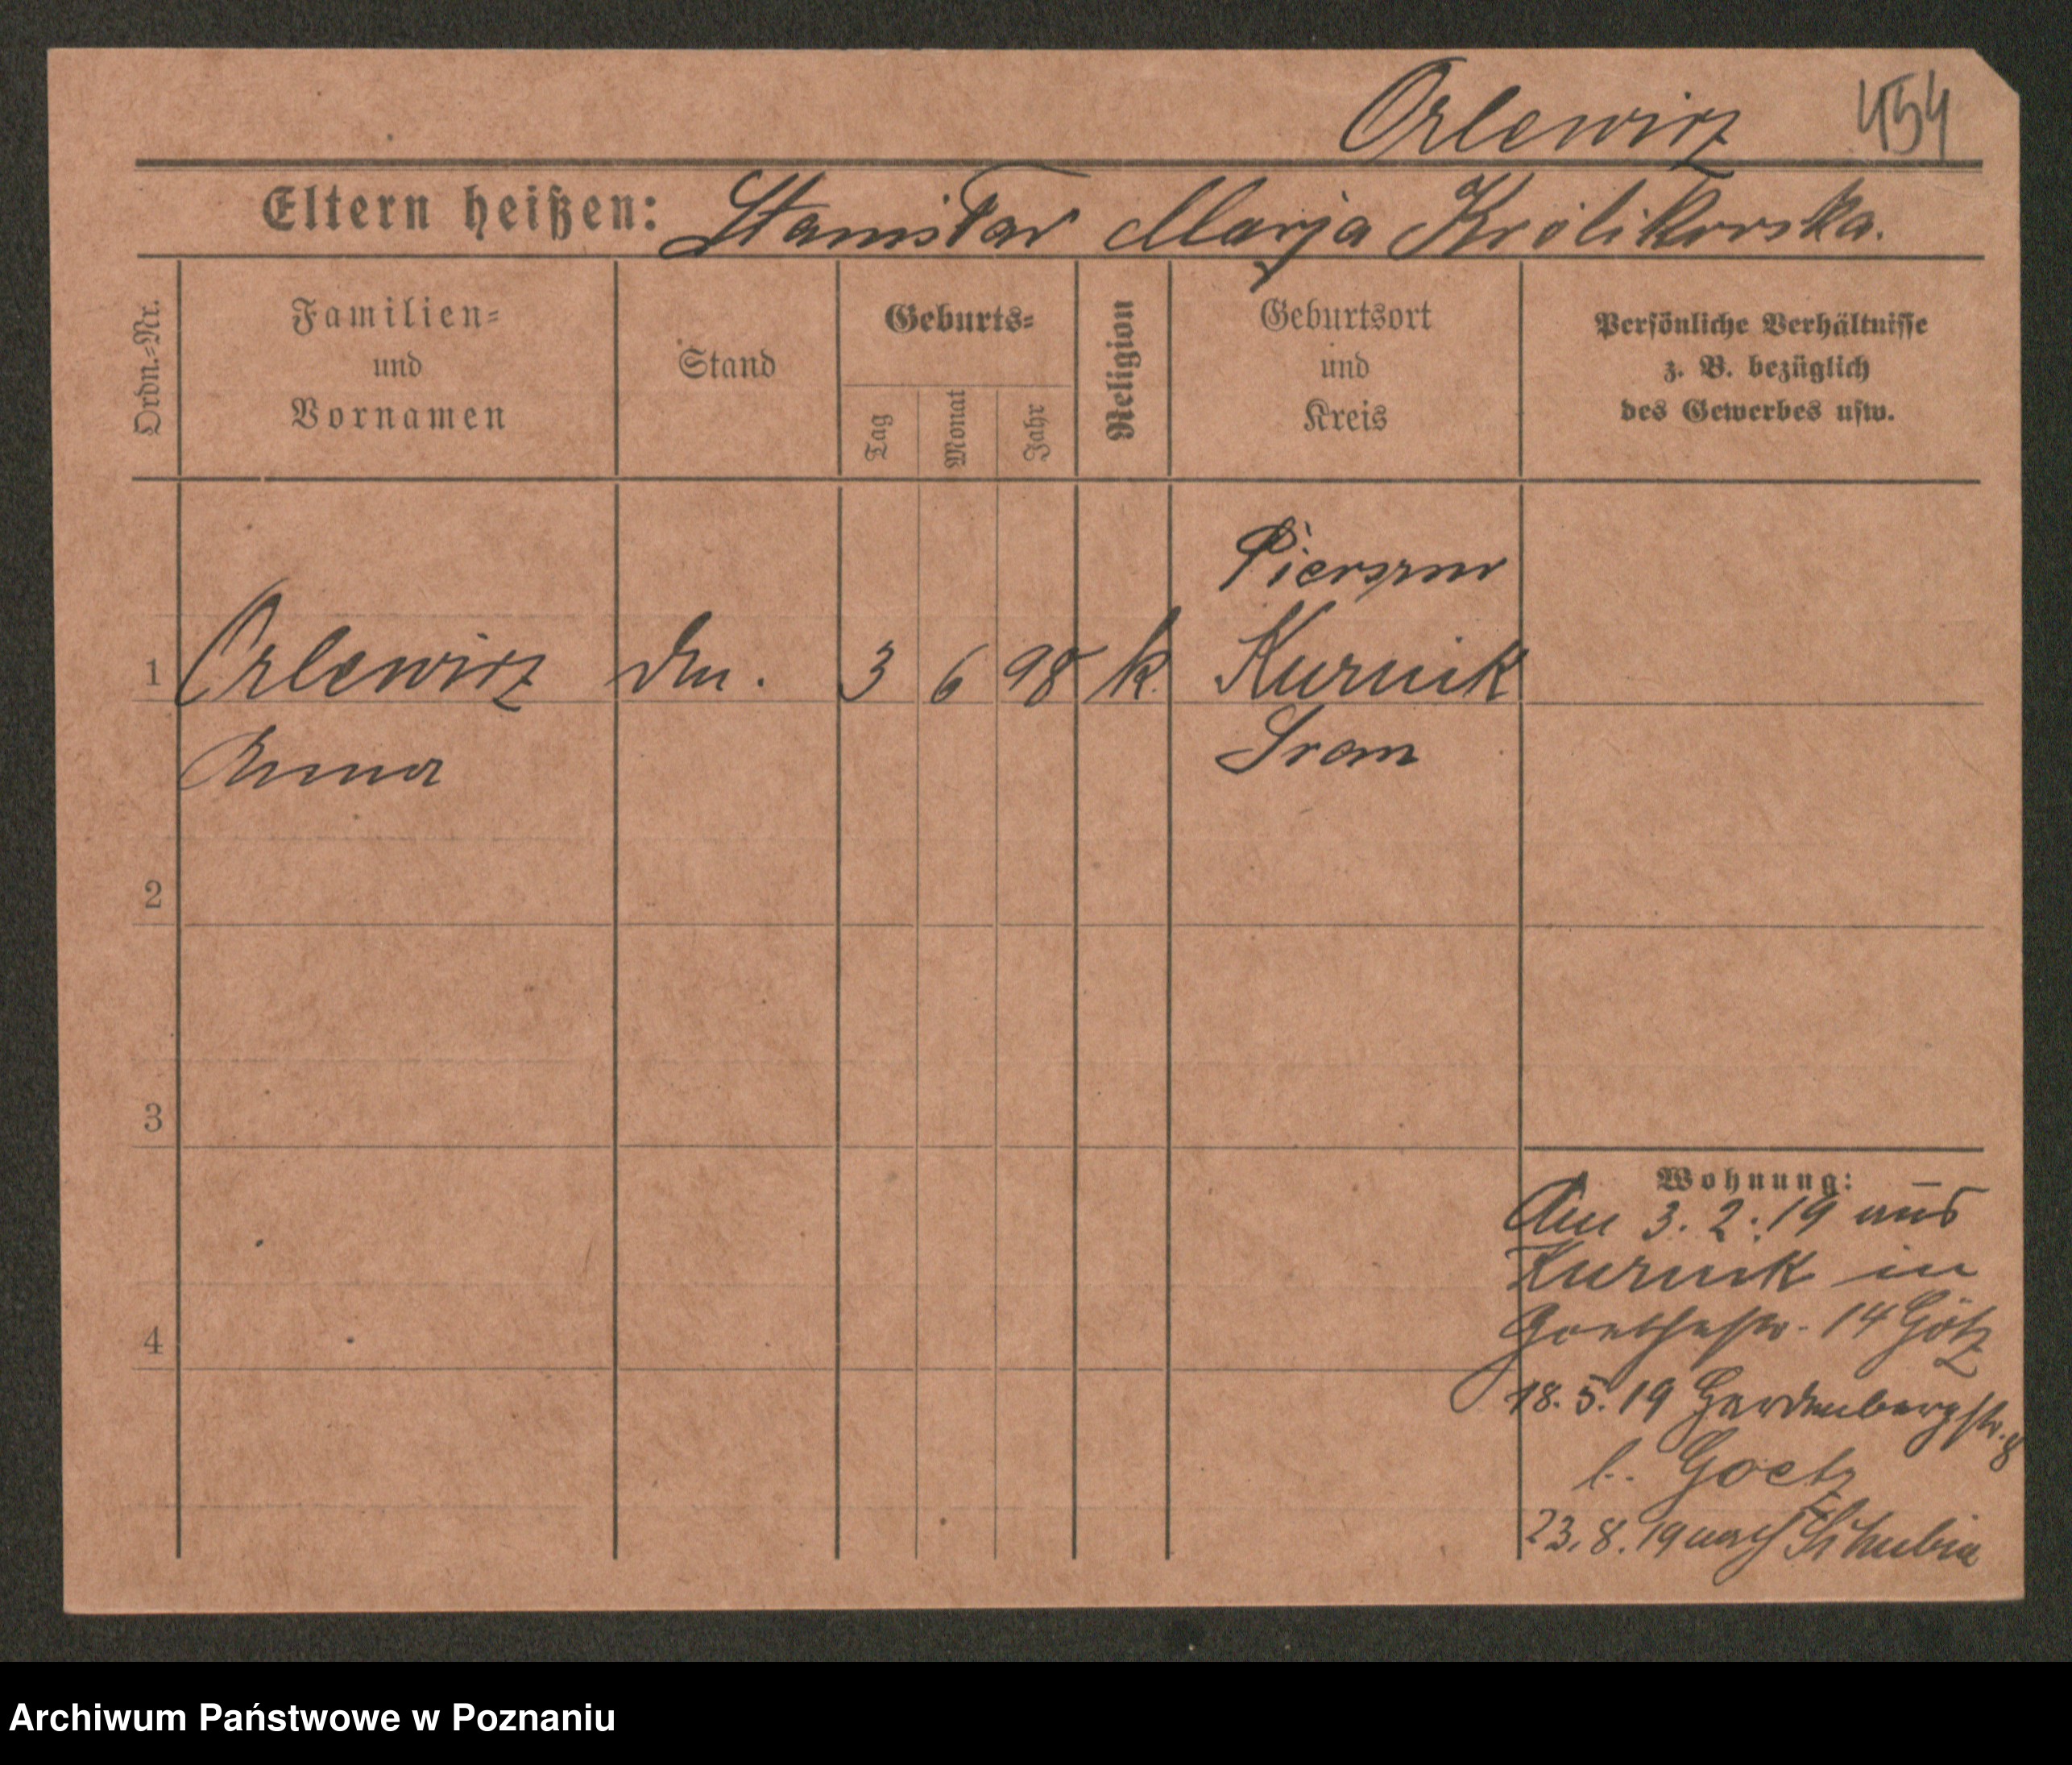 Orlewicz 454
Eltern heißen: Stanisław Marja Królikowska.
Ordn.-Nr.
Familien-
und
Vornamen
Stand
Geburts-
Tag
Monat
Jahr
Religion
Geburtsort
und
Kreis
Persönliche Verhältnisse
z. B. bezüglich
des Gewerbes usw.
1 Orlewicz 3 6 98 k. Kurnik
Anna Srem
2
3
4
Wohnung:
Am 3.2.19 aus
Kurnik in
Goethestr. 14 Götz
18.5.19 Hardenbergstr. 8
b. Goetz
23.8.19 nach Schubin
Archiwum Państwowe w Poznaniu